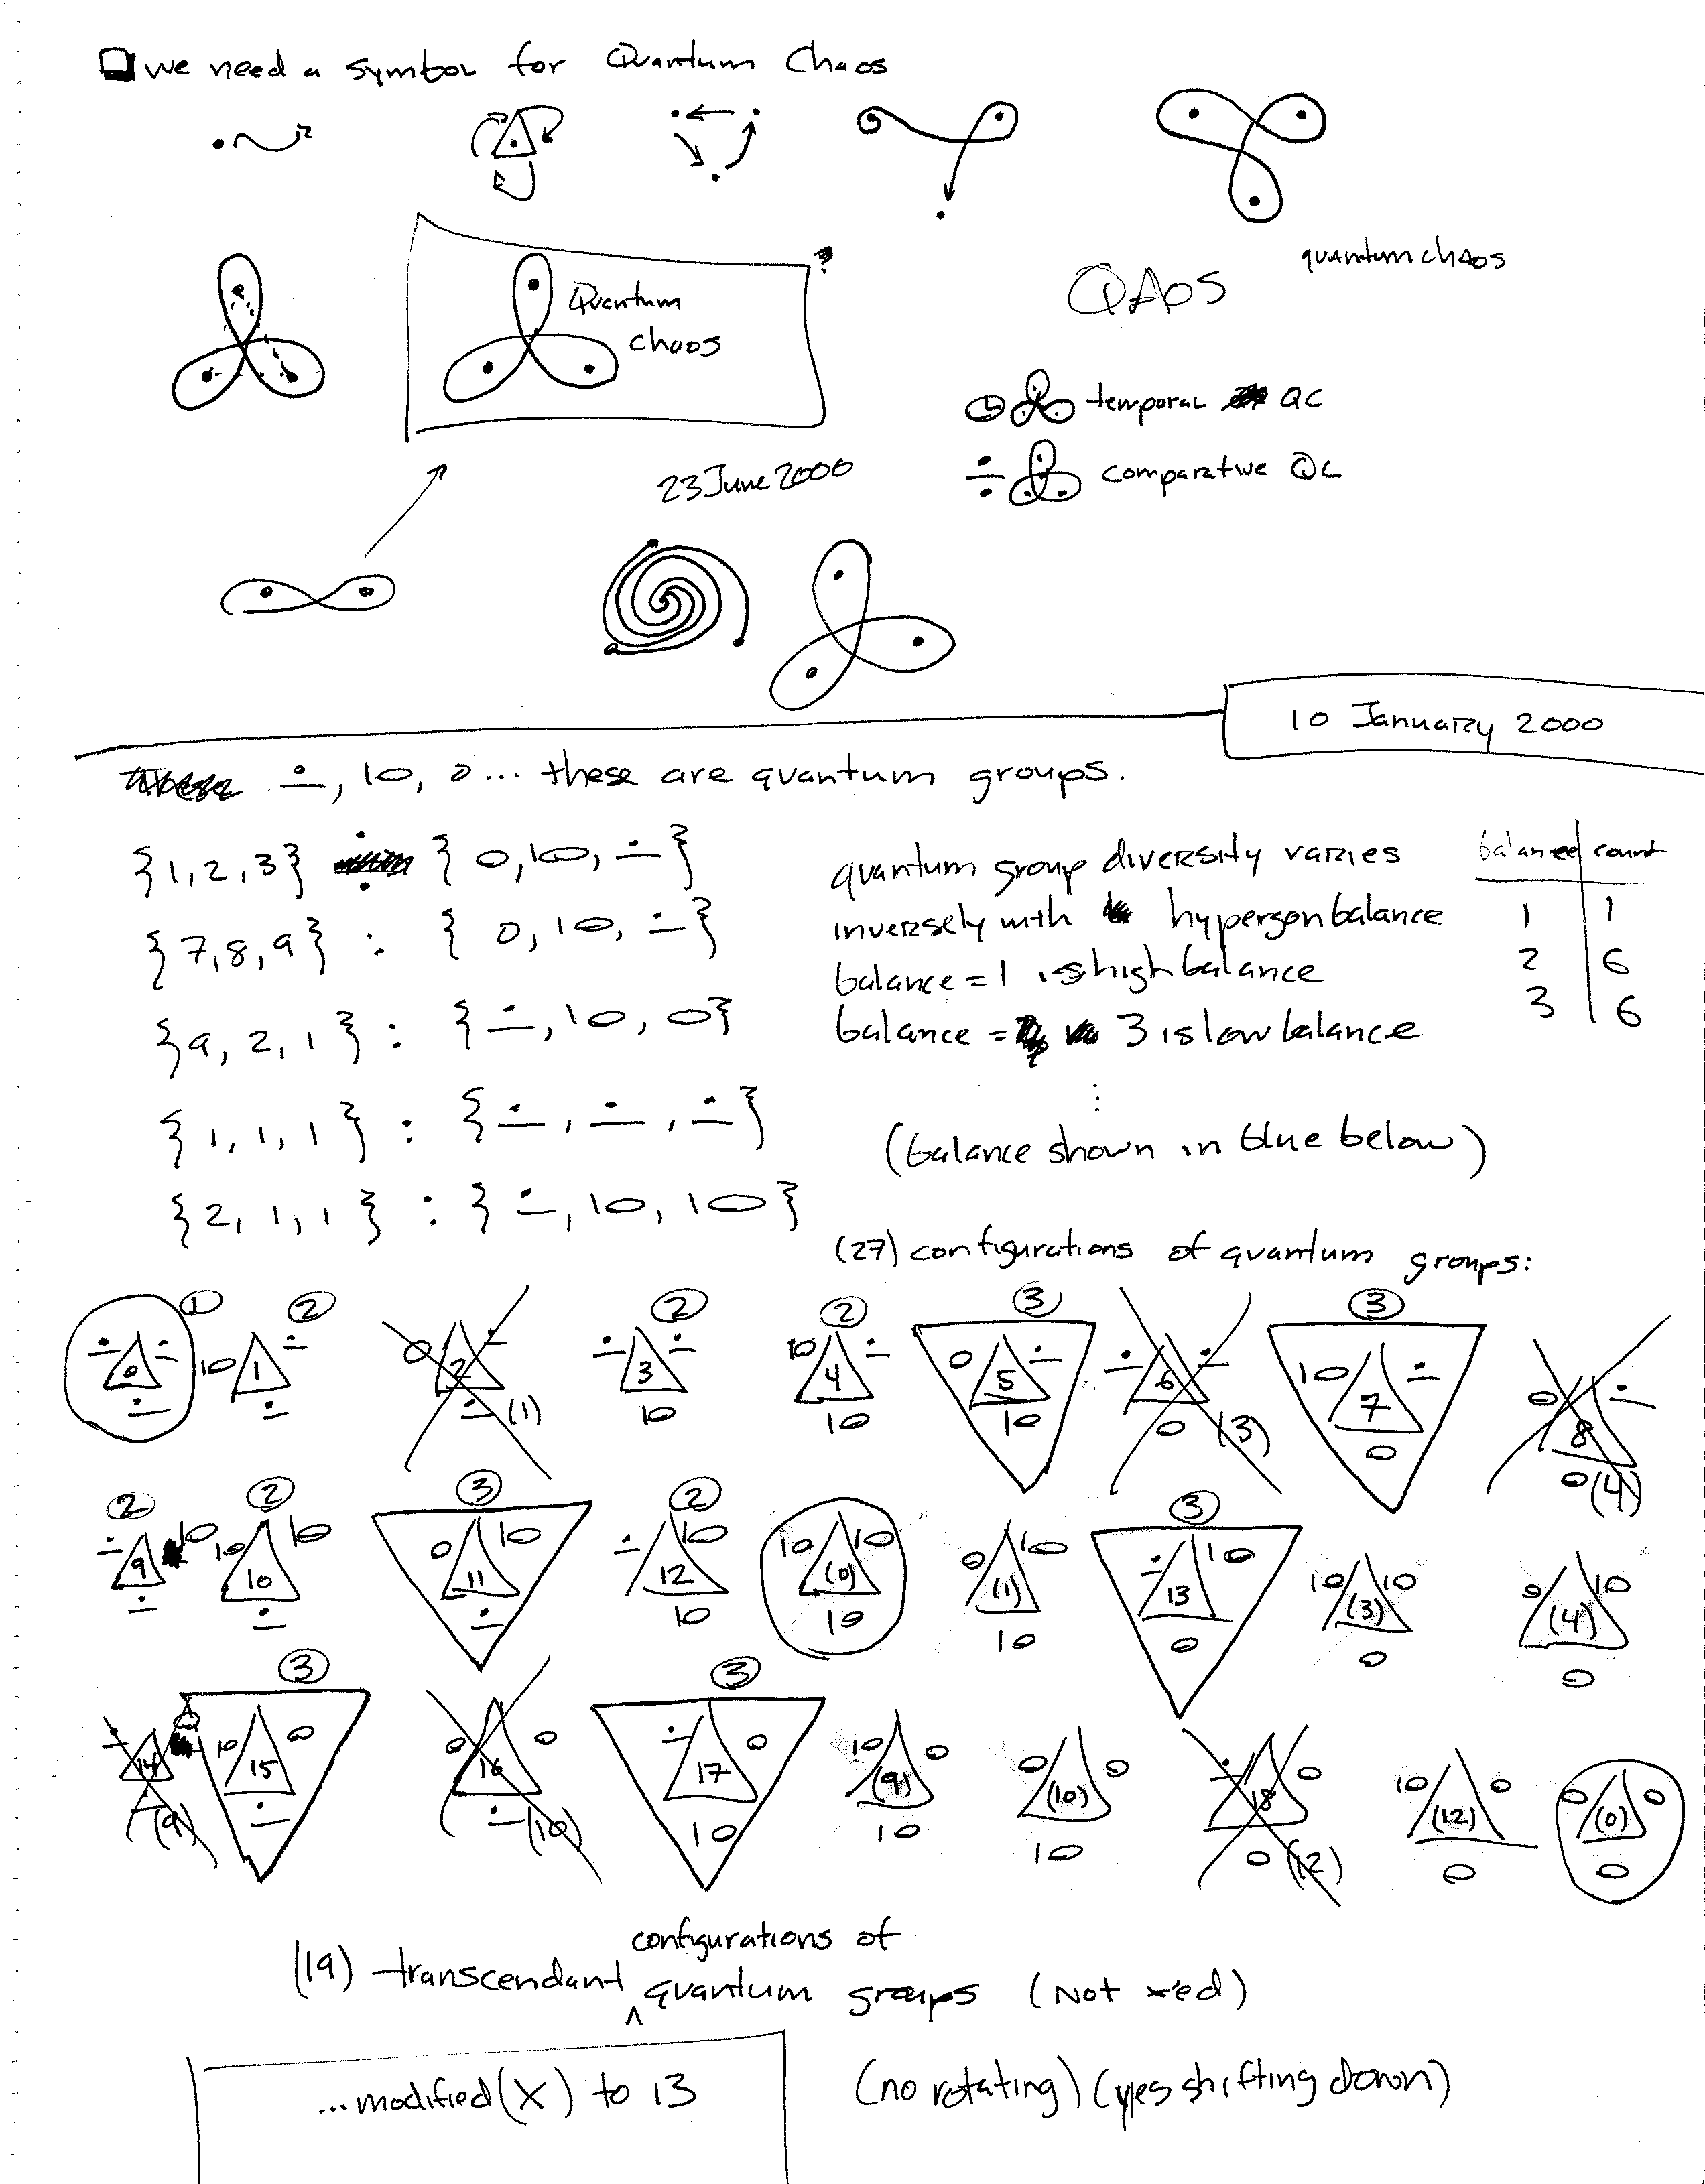 we need a symbol for Quantum Chaos
quantum chaos
QAos
Quantum
chaos
?
temporal QC
÷ comparative QC
23 June 2000
10 January 2000
∸, 10, 0... these are quantum groups.
{1, 2, 3} : {0, 10, ∸}
{7, 8, 9} : {0, 10, ∸}
{9, 2, 1} : {∸, 10, 0}
{1, 1, 1} : {∸, ∸, ∸}
{2, 1, 1} : {∸, 10, 10}
quantum group diversity varies
inversely with hyperson balance
balance = 1 is high balance
balance = 3 is low balance
⋮
(balance shown in blue below)
balance count
1 1
2 6
3 6
(27) configurations of quantum groups:
1 2 2 2 3 3
∸ 0 ∸ ∸
10 1 ∸ ∸
0 2 ∸ ∸ (1)
∸ 3 ∸ 10
10 4 ∸ 10
0 5 ∸ 10
∸ 6 ∸ 0 (3)
10 7 ∸ 0
0 8 ∸ 0 (4)
2 2 3 2 3
∸ 9 10 ∸
10 10 10 ∸
0 11 10 ∸
∸ 12 10 10
10 (0) 10 10
0 (1) 10 10
∸ 13 10 0
10 (3) 10 0
0 (4) 10 0
3 3
∸ 14 0 ∸ (9)
10 15 0 ∸
0 16 0 ∸ (10)
∸ 17 0 10
10 (9) 0 10
0 (10) 0 10
∸ 18 0 0 (12)
10 (12) 0 0
0 (0) 0 0
(19) transcendant configurations of
quantum groups (not x'ed)
...modified (X) to 13
(no rotating) (yes shifting down)